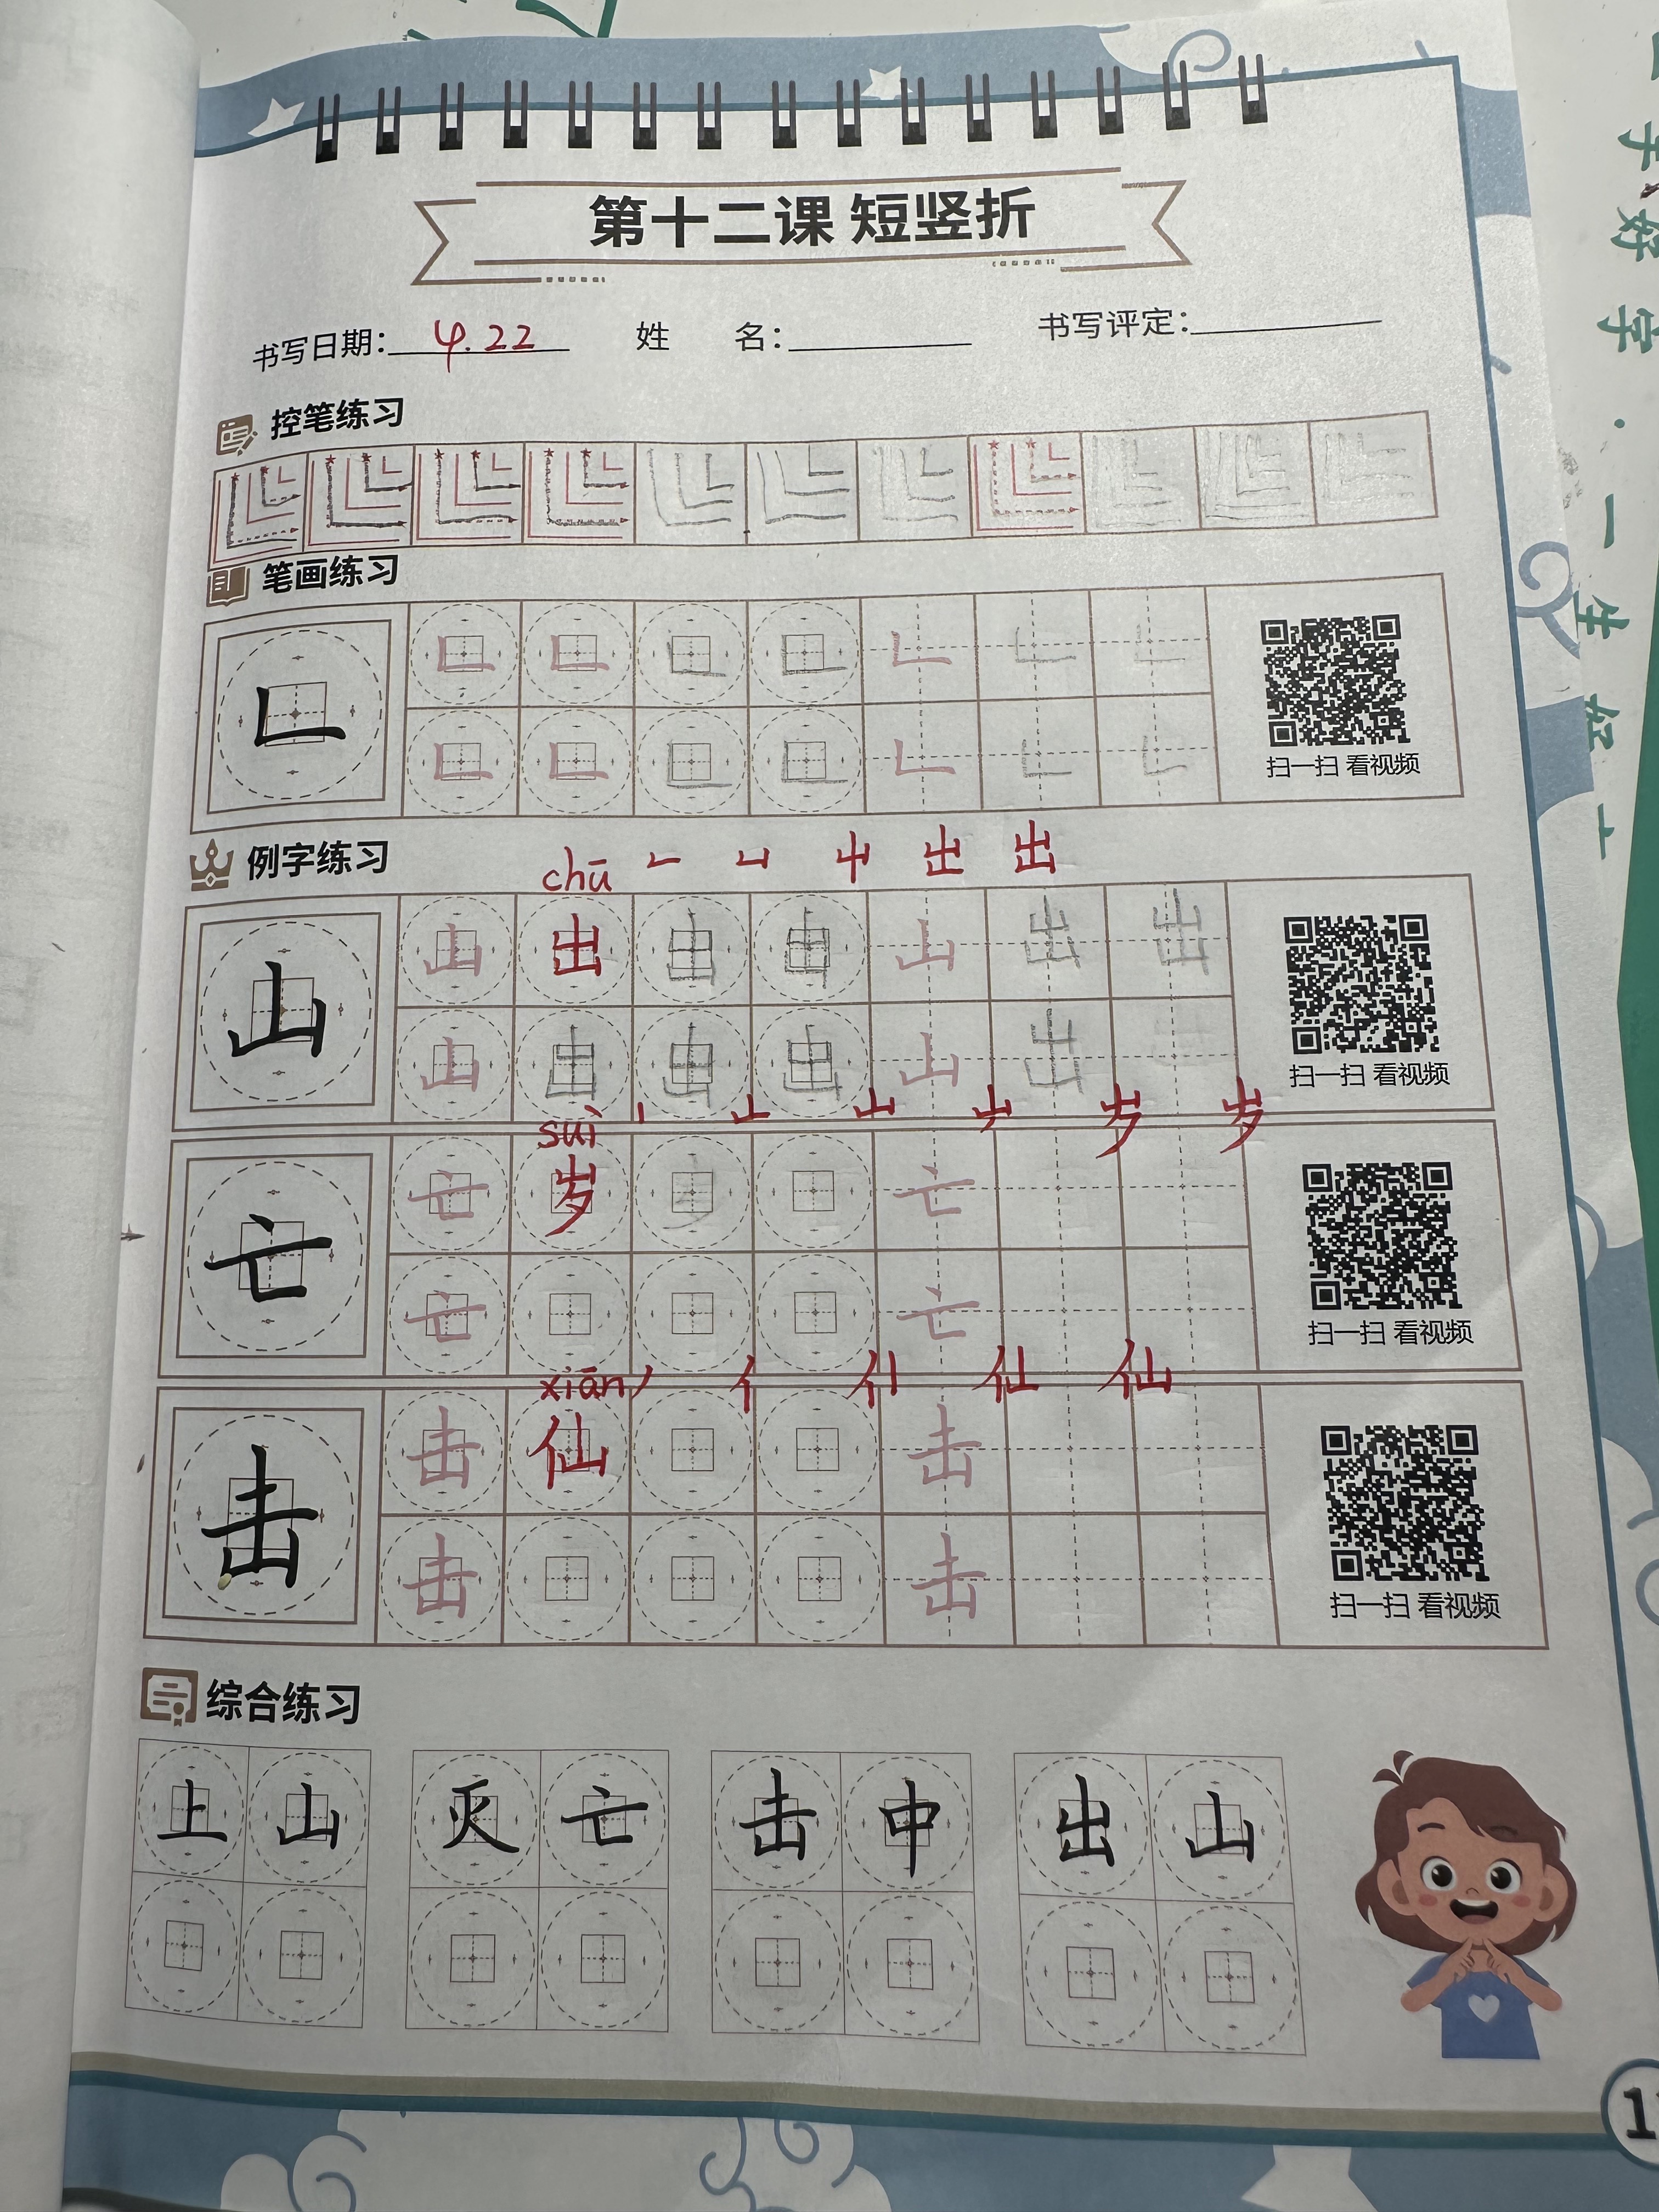 第十二课 短竖折
书写日期: 4.22 姓 名: 书写评定:
控笔练习
笔画练习
𠃊 𠃊 𠃊 𠃊 𠃊 𠃊 𠃊 𠃊
𠃊 𠃊 𠃊 𠃊 𠃊 𠃊 𠃊
扫一扫 看视频
例字练习
chū 𠃊 凵 屮 出 出
山 山 出 出 出 山 出 出
山 出 出 出 山 出
扫一扫 看视频
suì 丨 山 岁 岁
亡 亡 岁 亡
亡 亡
扫一扫 看视频
xiān 丿 亻 仙 仙
击 击 仙 击
击 击
扫一扫 看视频
综合练习
上山 灭亡 击中 出山